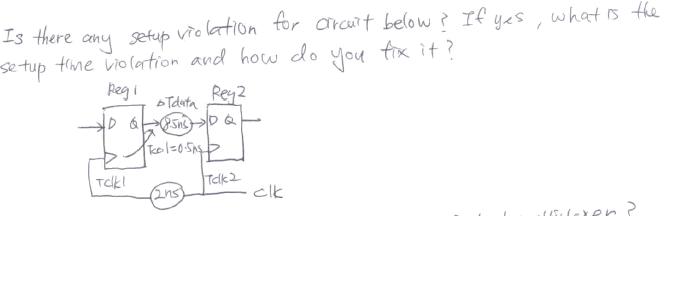 Is there any setup violation for circuit below? If yes, what is the
setup time violation and how do you fix it?
Reg1 ΔTdata Reg2
D Q 8.5ns D Q
Tco1=0.5ns
Tclk1 Tclk2
2ns clk
?